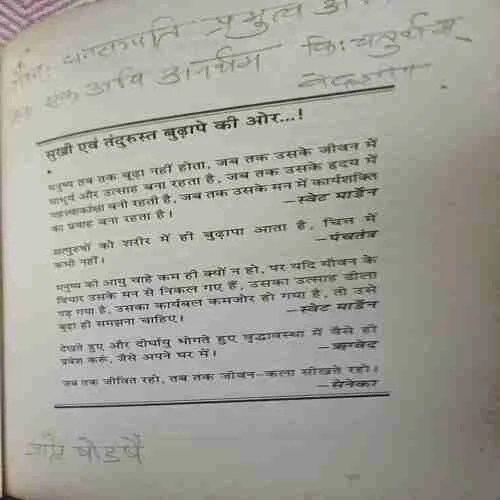 यौवन धनसम्पत्ति प्रभुत्व अ
एक अपि अनर्थम् किः चतुर्वयम्
सुखी एवं तंदुरुस्त बुढ़ापे की ओर...!
मनुष्य तब तक बूढ़ा नहीं होता, जब तक उसके जीवन में
माधुर्य और उत्साह बना रहता है, जब तक उसके हृदय में
महत्त्वाकांक्षा बनी रहती है, जब तक उसके मन में कार्यशक्ति
का प्रवाह बना रहता है।
—स्वेट मार्डेन
सत्पुरुषों को शरीर में ही बुढ़ापा आता है, चित्त में
कभी नहीं।
—पंचतंत्र
मनुष्य को आयु चाहे कम ही क्यों न हो, पर यदि यौवन के
विचार उसके मन से निकल गए हैं, उसका उत्साह ढीला
पड़ गया है, उसका कार्यबल कमजोर हो गया है, तो उसे
बूढ़ा ही समझना चाहिए।
—स्वेट मार्डेन
देखते हुए और दीर्घायु भोगते हुए वृद्धावस्था में वैसे ही
प्रवेश करूं, जैसे अपने घर में।
—ऋग्वेद
जब तक जीवित रहो, तब तक जीवन-कला सीखते रहो।
—सेनेका
और षोडषे